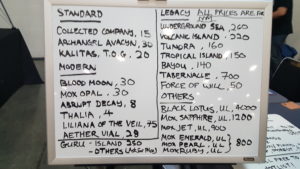 STANDARD
COLLECTED COMPANY, 15
ARCHANGEL AVACYN, 30
KALITAS, T.O.G, 20
MODERN
BLOOD MOON, 30
MOX OPAL, 30
ABRUPT DECAY, 8
THALIA, 4
LILIANA OF THE VEIL, 45
AETHER VIAL, 28
GURU - ISLAND 250
- OTHERS
LEGACY ALL PRICES ARE FOR NM
UNDERGROUND SEA, 260
VOLCANIC ISLAND, 220
TUNDRA, 160
TROPICAL ISLAND, 150
BAYOU, 140
TABERNACLE, 700
FORCE OF WILL, 50
OTHERS
BLACK LOTUS, UL, 4000
MOX SAPPHIRE, UL, 1200
MOX JET, UL, 900
MOX EMERALD, UL
MOX PEARL, UL
MOX RUBY, UL
800